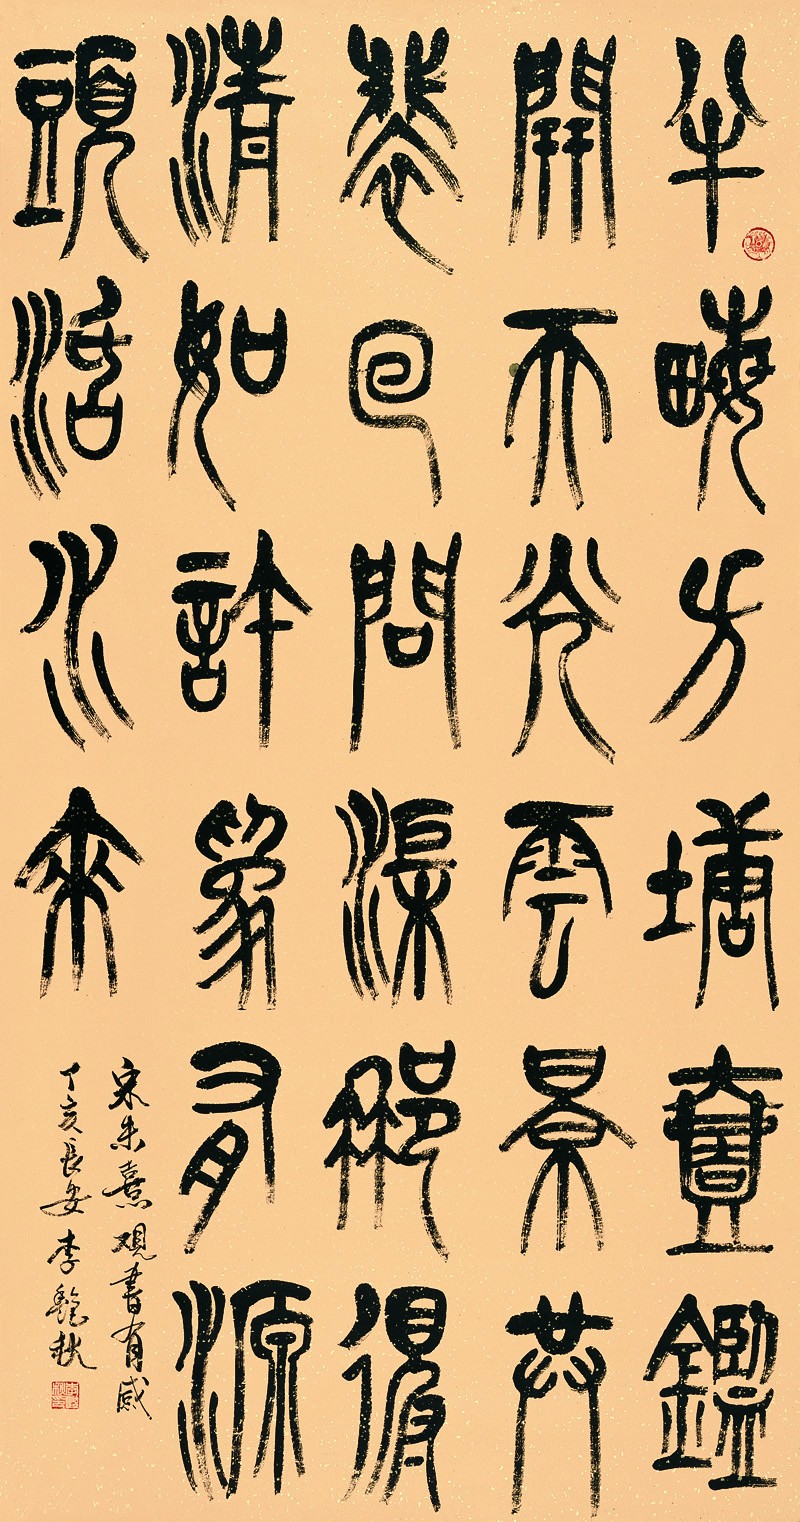 半畮方塘壹鑑
開天光雲景共
裴回問渠那得
清如許爲有源
頭活水來
宋朱熹觀書有感
丁亥長安李艷秋